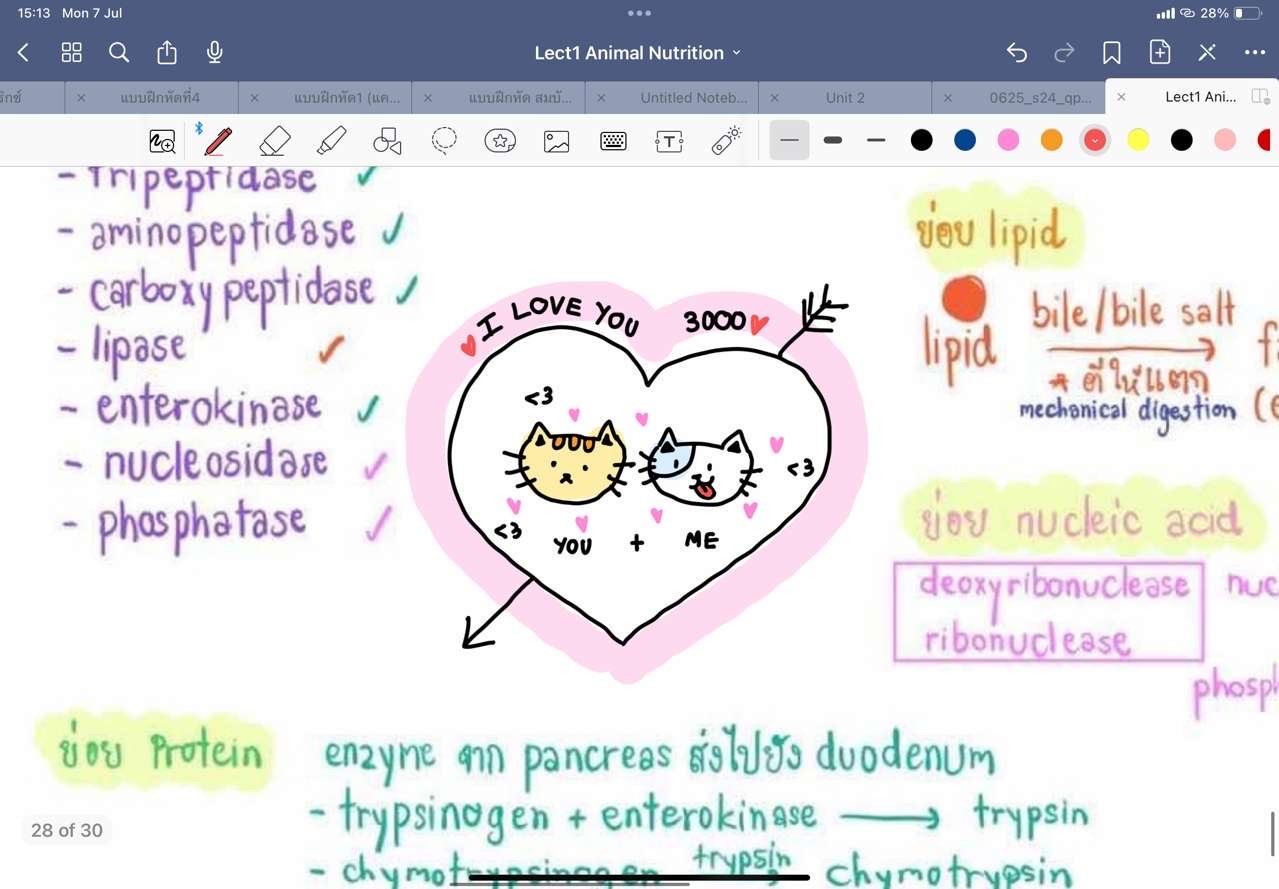 15:13 Mon 7 Jul
28%
Lect1 Animal Nutrition
แบบฝึกหัดที่4
แบบฝึกหัด1 (แค...
แบบฝึกหัด สมบั...
Untitled Noteb...
Unit 2
0625_s24_qp...
Lect1 Ani...
T
- tripeptidase ✓
- aminopeptidase ✓
- carboxypeptidase ✓
- lipase ✓
- enterokinase ✓
- nucleosidase ✓
- phosphatase ✓
I LOVE YOU 3000
<3
<3
<3
YOU + ME
ย่อย lipid
bile/bile salt
lipid
* ตีให้แตก
mechanical digestion
ย่อย nucleic acid
deoxyribonuclease
ribonuclease
ย่อย Protein
enzyme จาก pancreas ส่งไปยัง duodenum
- trypsinogen + enterokinase → trypsin
- chymotrypsinogen trypsin → chymotrypsin
28 of 30